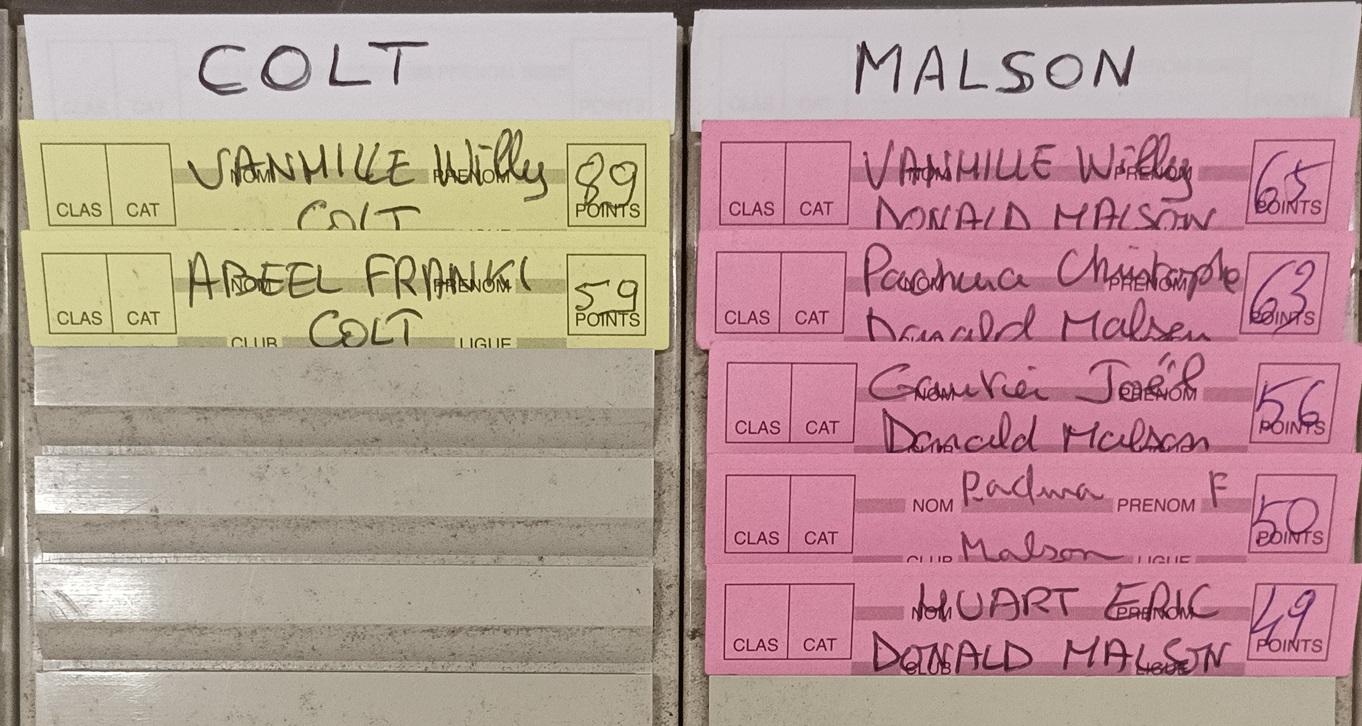 COLT
CLAS CAT VANHILLE Willy 89
NOM PRENOM POINTS
COLT
CLAS CAT ABEEL FRANKI 59
NOM PRENOM POINTS
COLT
CLUB LIGUE
MALSON
CLAS CAT VANHILLE Willy 65
NOM PRENOM POINTS
DONALD MALSON
CLAS CAT Christophe 63
NOM PRENOM POINTS
Donald Malson
CLAS CAT Joël 56
NOM PRENOM POINTS
Donald Malson
CLAS CAT NOM Padwa PRENOM F 50
POINTS
CLUB Malson LIGUE
CLAS CAT HUART ERIC 49
NOM PRENOM POINTS
DONALD MALSON
CLUB LIGUE